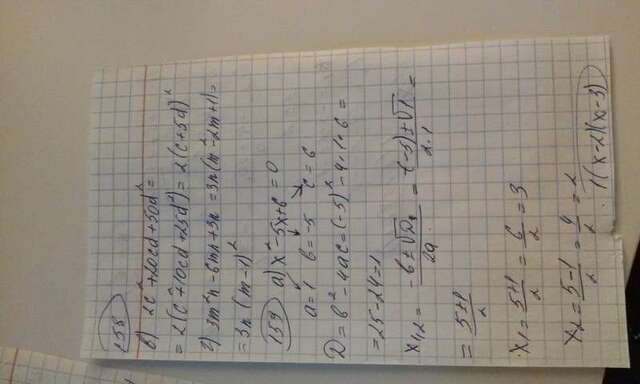 158
в) 2c²+20cd+50d²=
=2(c²+10cd+25d²)=2(c+5d)²
г) 3m²n-6mn+3n=3n(m²-2m+1)=
=3n(m-1)²
159 а) x²-5x+6=0
a=1 b=-5 c=6
D=b²-4ac=(-5)²-4·1·6=
=25-24=1
x₁,₂= (-b±√D)/2a = (-(-5)±√1)/2·1 =
= (5±1)/2
x₁= (5+1)/2 = 6/2 =3
x₂= (5-1)/2 = 4/2 =2
1(x-2)(x-3)